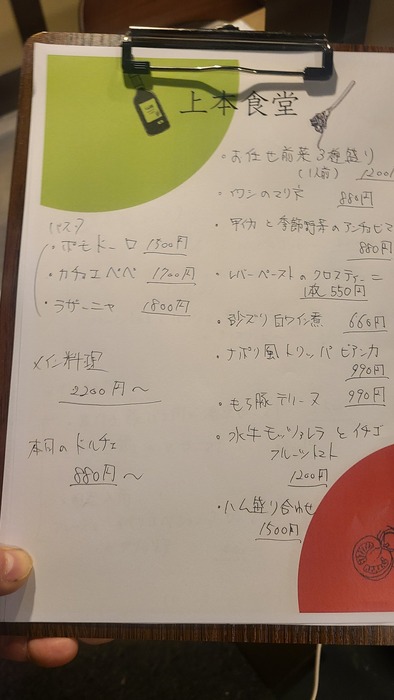 上本食堂
・お任せ前菜3種盛り
(1人前) 1200
・イワシのマリネ 880円
・甲イカと季節野菜のアンチョビマ
880円
・レバーペーストのクロスティーニ
1枚 550円
・砂ズリ白ワイン煮 660円
・ナポリ風トリッパ ビアンカ
990円
・もち豚テリーヌ 990円
・水牛モッツァレラとイチゴ
フルーツトマト
1200円
・ハム盛り合わせ
1500円
パスタ
・ポモドーロ 1500円
・カチョエペペ 1700円
・ラザーニャ 1800円
メイン料理
2200円〜
本日のドルチェ
880円〜